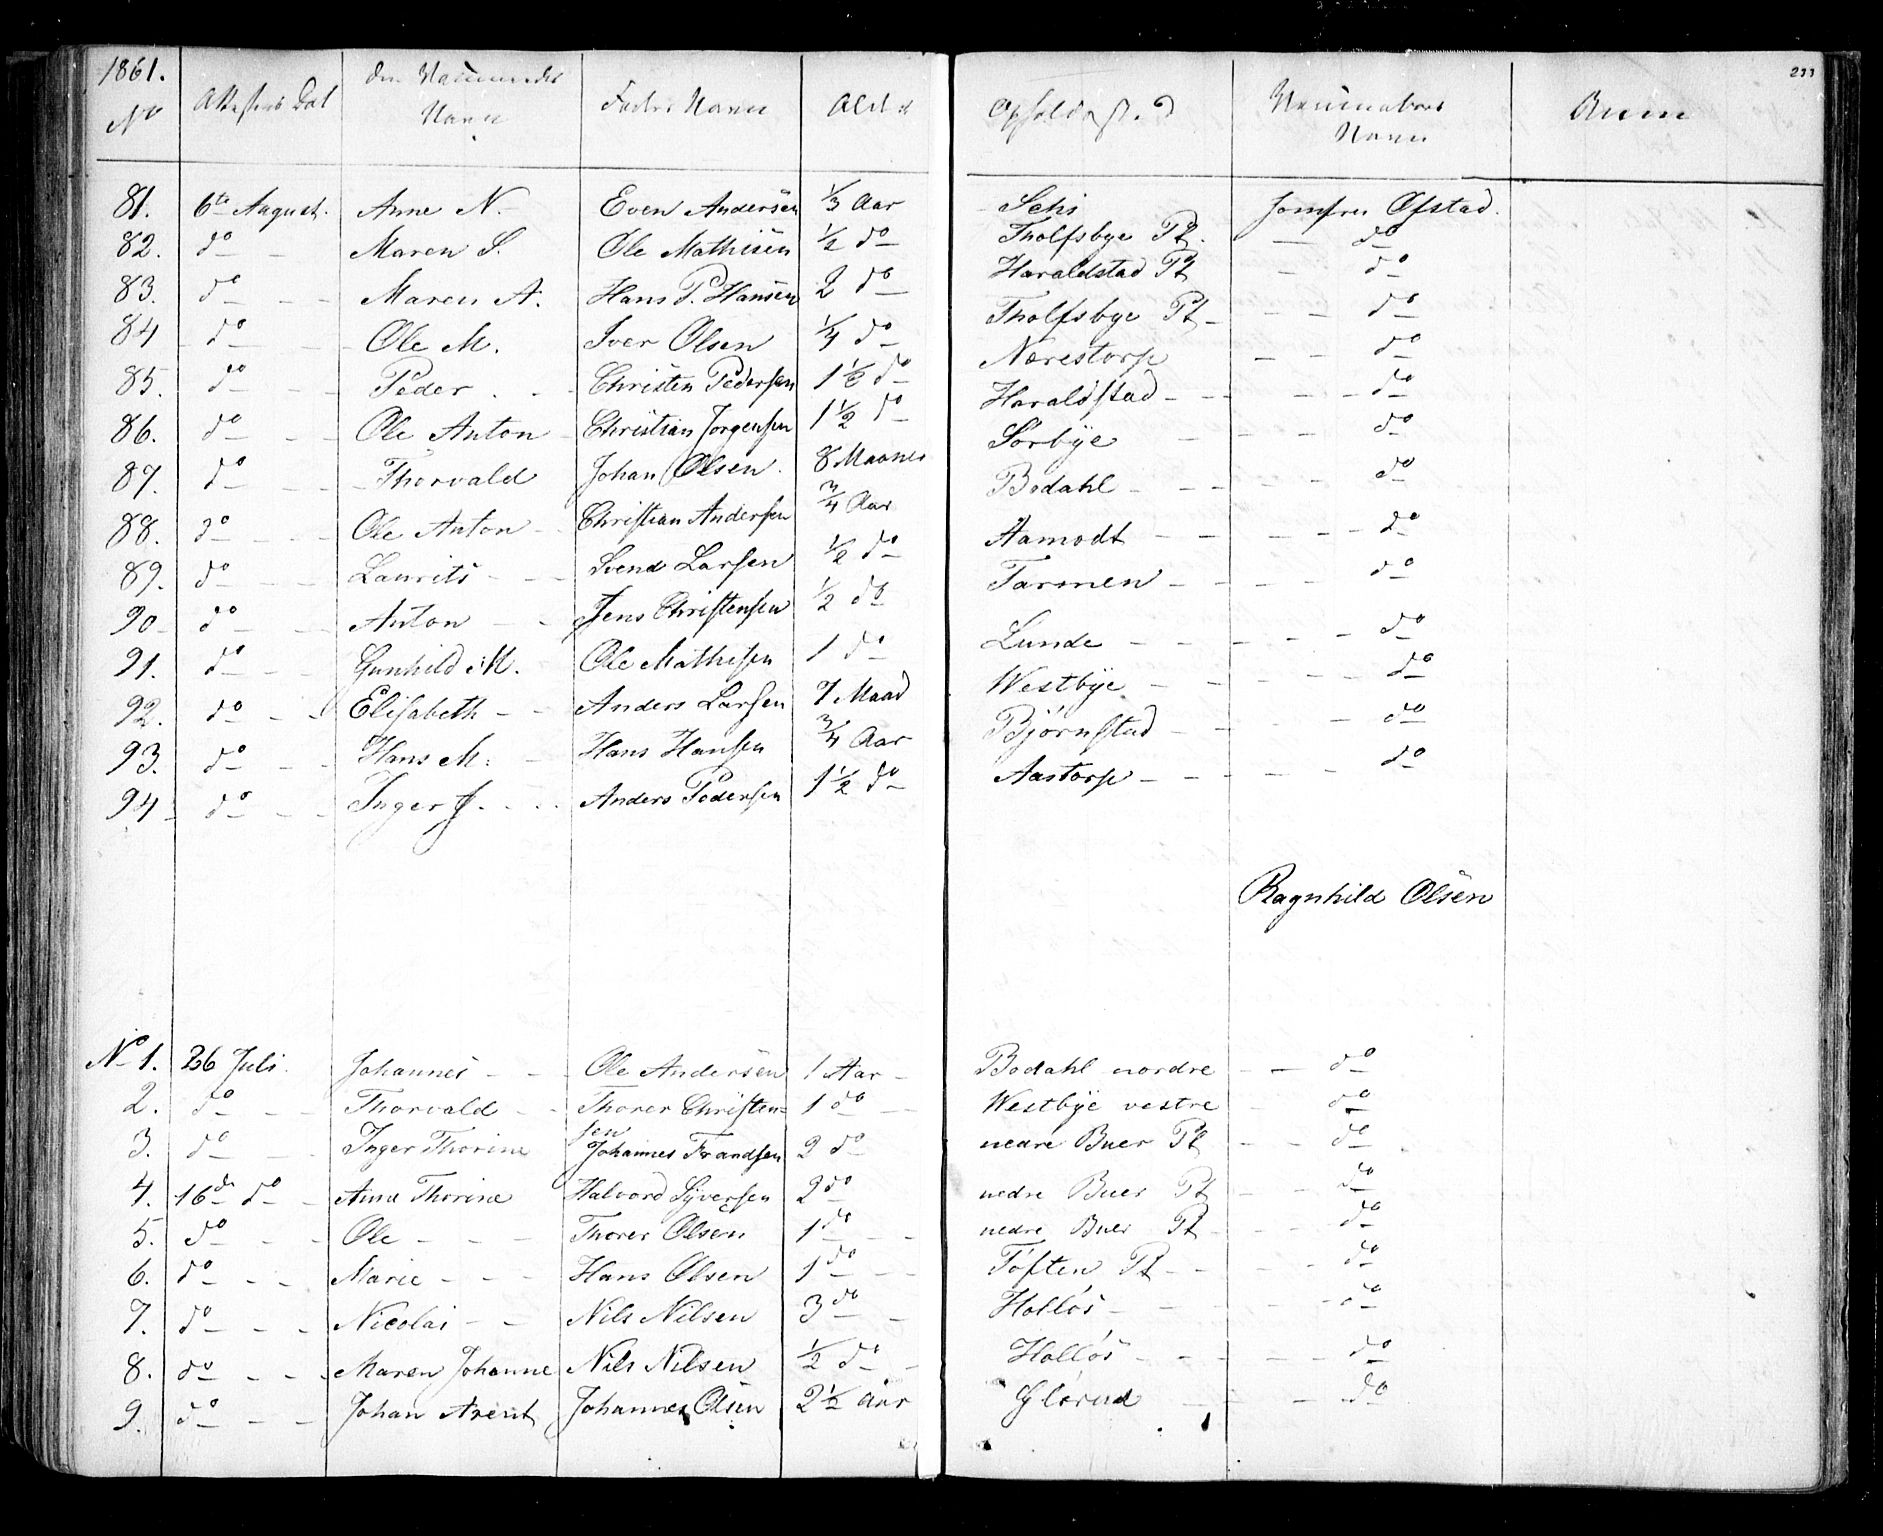 1861.
233
No Attestens Dat. den Vaccineredes Navn Faders Navn Alder Opholdsst. Vaccinateurs Navn Anm
81. 6te August. Anne N. Even Andersen 1/3 Aar Jomfru Øfstad.
82. do Maren S. Ole Mathisen 1/2 do Tholfsbye Pt. do
83. do Maren A. Hans P. Hansen 2 do Haraldstad Pt do
84 do Ole M. Iver Olsen 1/4 do Tholfsbye Pt do
85. do Peder Christen Pedersen 1 1/2 do Nærestorp do
86. do Ole Anton Christian Jørgensen 1 1/2 do Haraldstad do
87. do Thorvald Johan Olsen. 8 Maaner Sørbye do
88. do Ole Anton Christian Andersen 3/4 Aar Bodahl do
89. do Laurits Svend Larsen 1/2 do Aamodt do
90 do Anton Jens Christensen 1/2 do Tarmen do
91. do Gunhild M. Ole Mathisen 1 do Lunde do
92. do Elisabeth Anders Larsen 7 Maad Westbye do
93. do Hans M. Hans Hansen 3/4 Aar Bjørnstad do
94 do Inger J. Anders Pedersen 1 1/2 do Aastorp do
Ragnhild Olsen
No 1. 26 Juli. Johannes Ole Andersen 1 Aar Bodahl nordre do
2. do Thorvald Thorer Christen- 1 do Westbye vestre do
sen
3. do Inger Thorine Johannes Frandsen 2 do nedre Buer Pt do
4. 16de do Anne Thorine Halvord Syversen 2 do nedre Buer Pt do
5. do Ole Thorer Olsen 1 do nedre Buer Pt do
6. do Marie Hans Olsen 1 do Tøften Pt do
7. do Nicolai Nils Nilsen 3 do Holløs do
8. do Maren Johanne Nils Nilsen 1/2 do Holløs do
9. do Johan Arent Johannes Olsen 2 1/2 Aar Glørud do